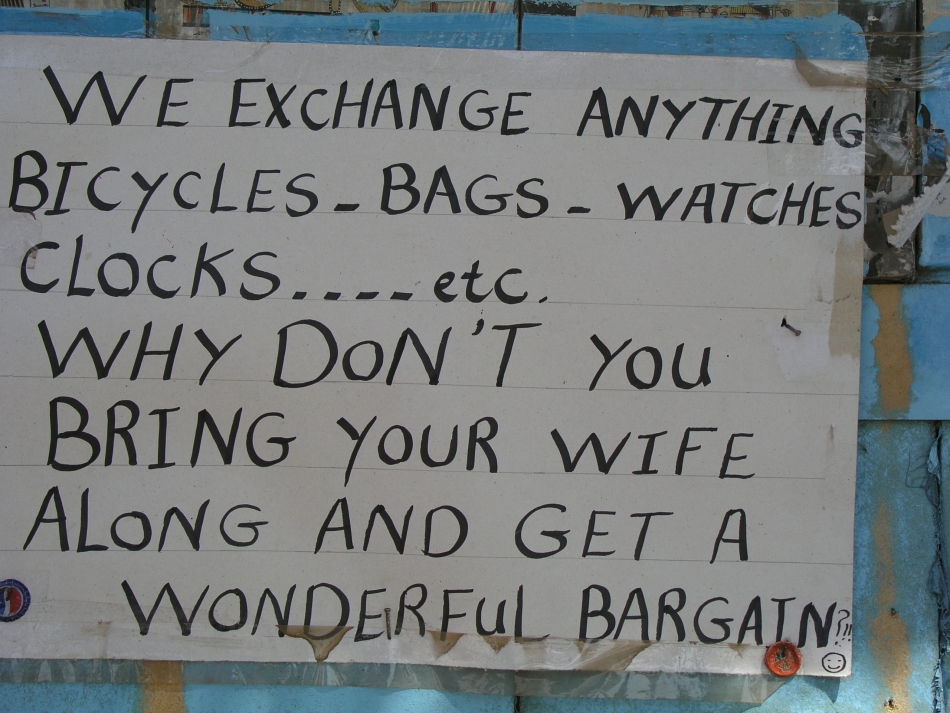 WE EXCHANGE ANYTHING
BICYCLES - BAGS - WATCHES
CLOCKS.---etc.
WHY DON'T YOU
BRING YOUR WIFE
ALONG AND GET A
WONDERFUL BARGAIN?!!